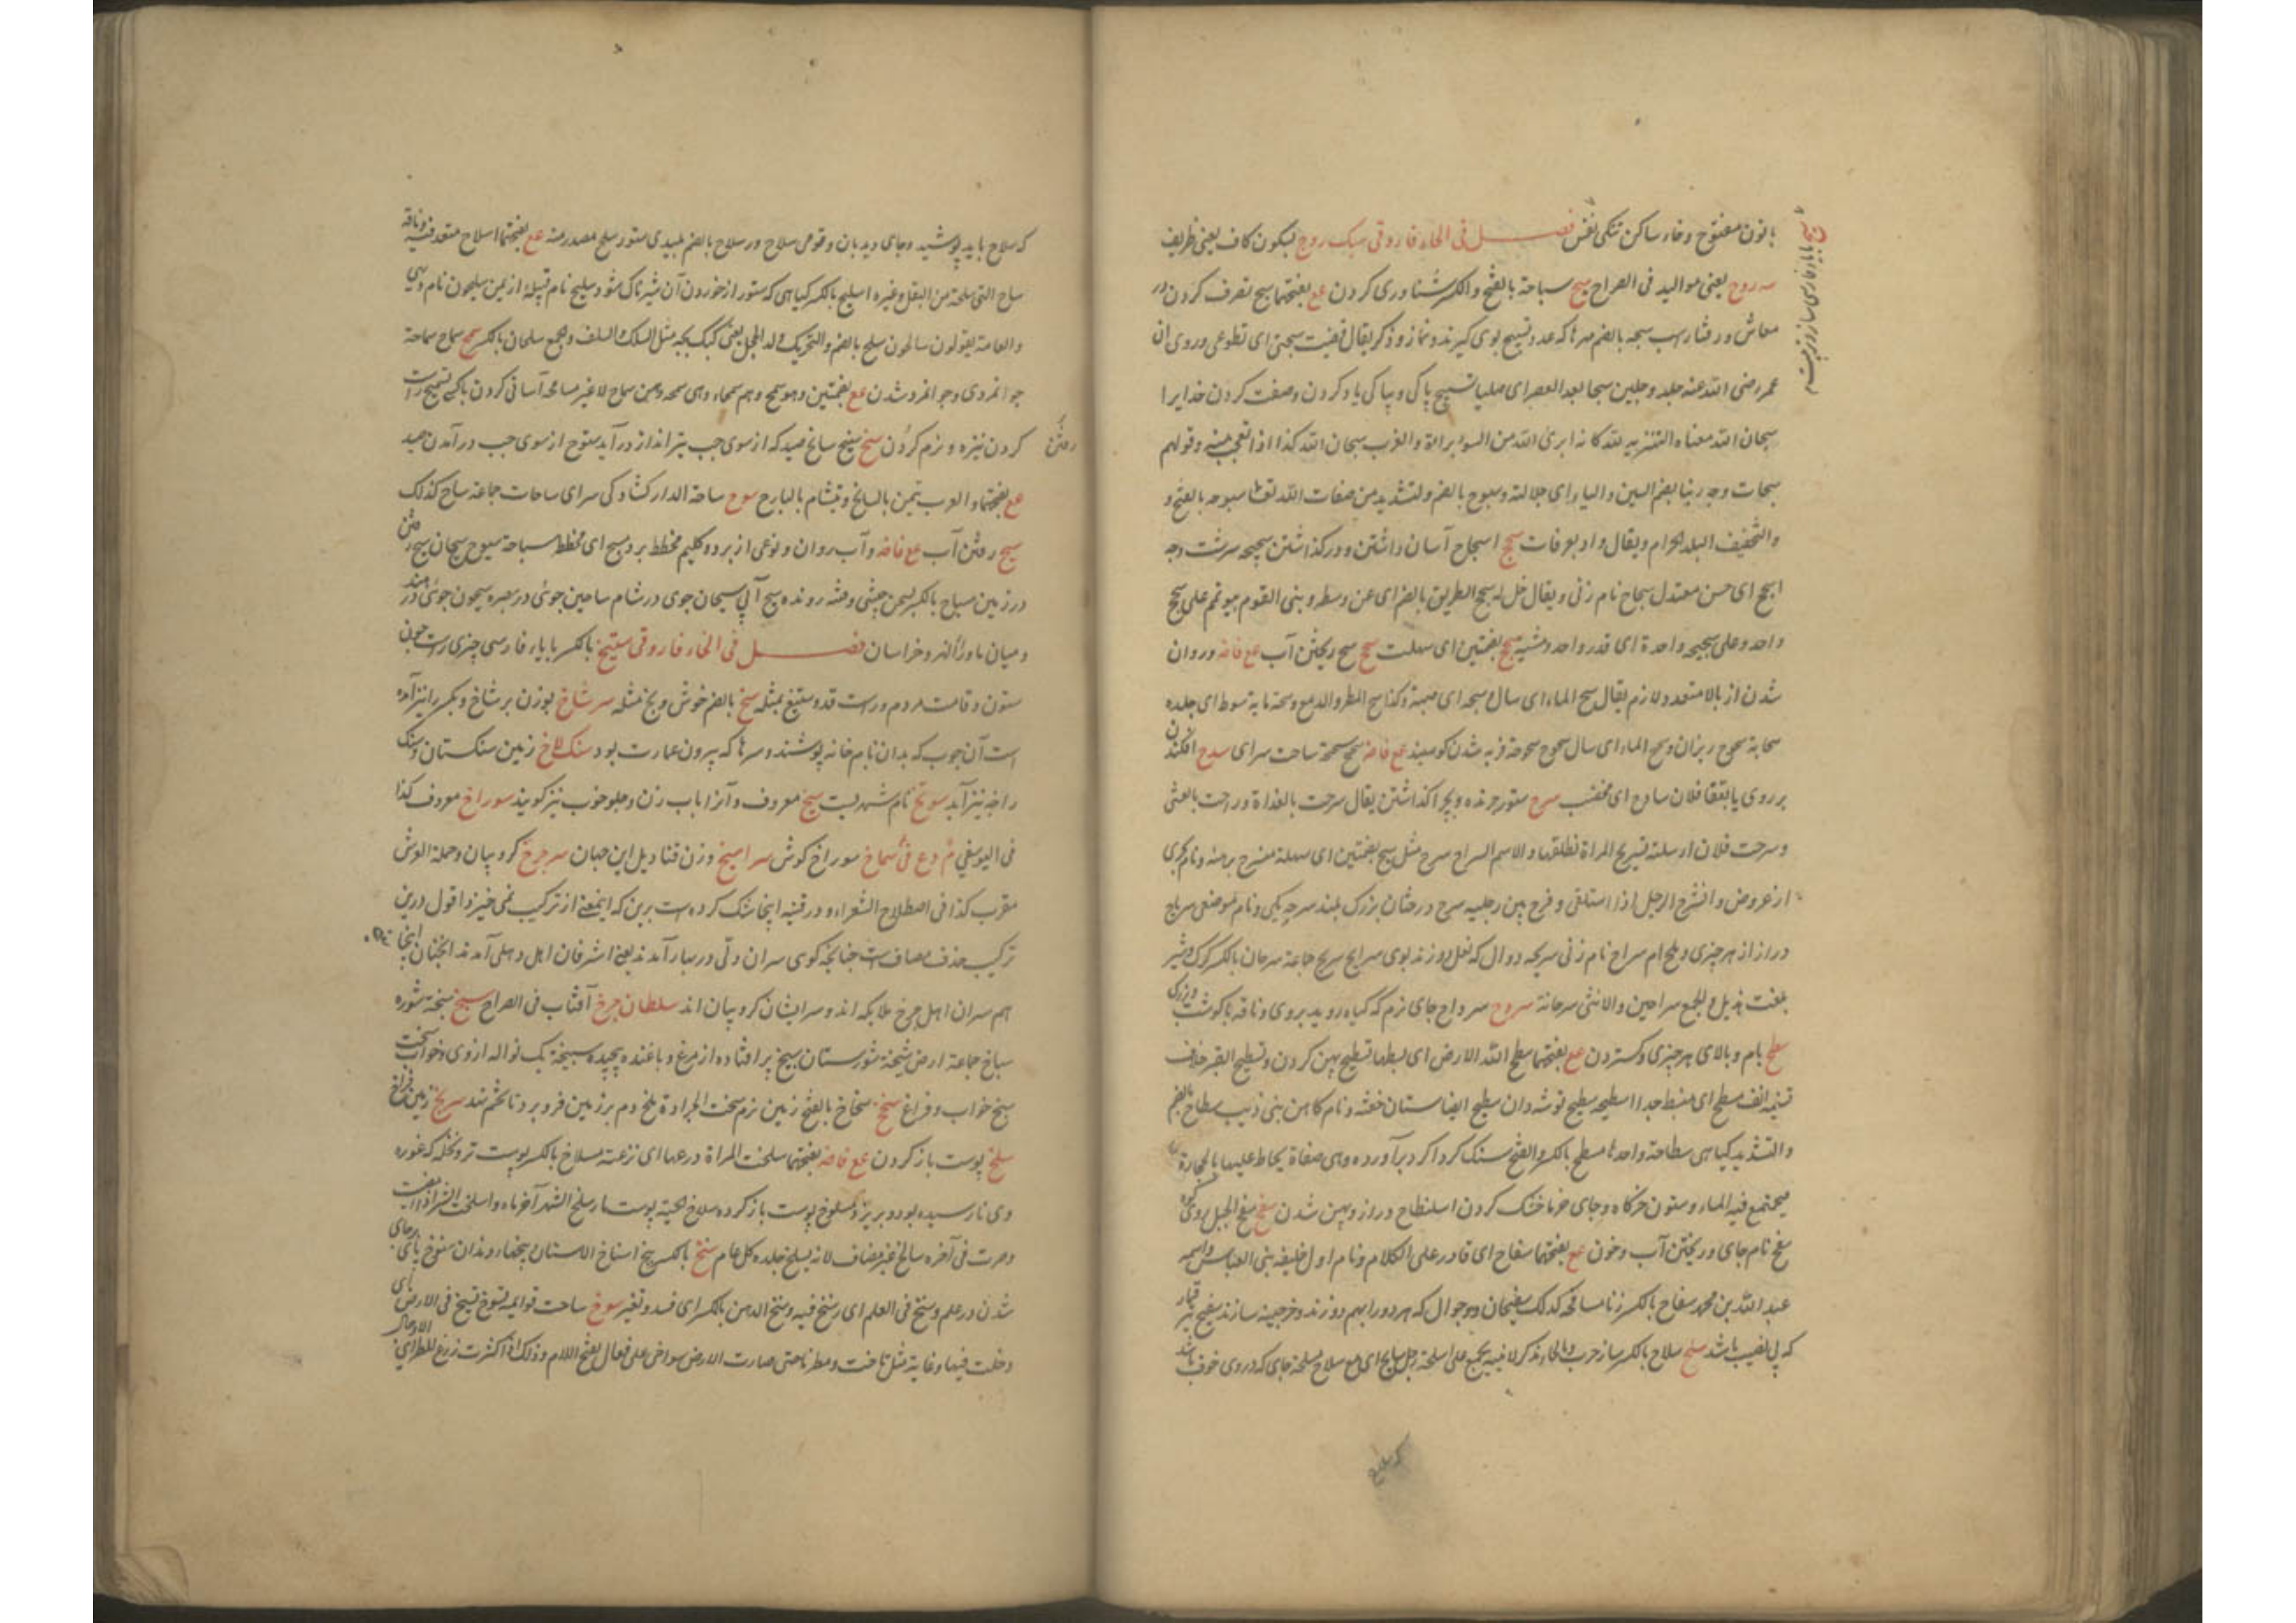 بانون مفتوح و خاء ساکن تنکی نفس فصل فی الحاء فاروقی سبک روح بسکون کاف یعنی ظریف
سه روح یعنی موالید فی الصراح سبح سباحة بالفتح والکسر شناوری کردن مع بفتحتها سبح تصرف کردن در
معاش و رفتار اسب سبحه بالضم مهرها که عدد تسبیح بوی گیرند و نماز و ذکر یقال قضیت سبحتی ای تطوعی وروی ان
عمر رضی الله عنه جلد رجلین سبحا بعد العصر ای صلیا تسبیح پاکی و بپاکی یاد کردن وصفت کردن خدایرا
سبحان الله معناه التنزیه لله کانه ابرئ الله من السوء براءة والعرب سبحان الله کذا اذا تعجب منه وقولهم
سبحات وجه ربنا بضم السین والباء ای جلالته وسبوح بالضم ولتشدید من صفات الله تعا سبوحه بالفتح و
والتخفیف البلد الحرام ویقال واد بعرفات سجح اسجاح آسان داشتن ودر کذاشتن سجیحه سرشت وجه
اسجح ای حسن معتدل سجاح نام زنی ویقال خل له سجح الطریق بالضم ای عن وسطه وبنی القوم بیوتهم علی سجح
واحد وعلی سجیحه واحدة ای قدر واحد ومشیة سجح بضمتین ای سهلت سح سح ریختن آب مع فاضه وروان
شدن از بالا متعد ولازم یقال سح الماء ای سال وسحه ای صبه وکذا سح المطر والدمع وسحه مایة سوط ای جلده
سحابة سحوح ریزان وسح الماء ای سال سحوح سحوحة فربه شدن کوسپند مع فاضه سحسح سحسحة ساحت سرای سدح افکندن
بر روی یا بقفا فلان سادح ای مخصب سرح ستور چرنده و بچرا کذاشتن یقال سرحت بالغداة وراحت بالعشی
وسرحت فلان ارسلته تسریح المراة تطلیقها والاسم السراح سرح مثل سجح بضمتین ای سهلة منسرح برهنه ونام بحری
از عروض وانسرح الرجل اذا استلقی وفرج بین رجلیه سرح درختان بزرک بلند سرحه یکی ونام موضعی سریاح
دراز از هر چیزی وملخ ام سریاح نام زنی سریحه دوال که نعل دوزند بوی سرایح سریح جماعة سرحان بالکسر کرک وشیر
بلغت هذیل والجمع سراحین والانثی سرحانة سردح سرداح جای نرم که کیاه روید بروی وناقه باکوشت وبزرک
سطح بام وبالای هر چیزی وکستردن مع بفتحتها سطح الله الارض ای بسطها تسطیح پهن کردن وتسطیح القبر خلاف
تسنیمه انف مسطح ای منبسط جدا اسطیحه سطیح توشه دان سطیح ایضا ستان خفته ونام کاهن بنی ذیب سطاح بالضم
والتشدید کیاهی سطاحة واحدها مسطح بالکسر والفتح سنک کردا کرد برآورده وهی صفاة یحاط علیها بالحجارة
فیجتمع فیه الماء وستون خرکاه وجای خرما خشک کردن اسلنطاح دراز وپهن شدن سفح سفح الجبل روی کوه
سفح نام جای وریختن آب وخون مع بفتحتها سفاح ای قادر علی الکلام ونام اول خلیفه بنی العباس واسمه
عبد الله بن محمد سفاح بالکسر زنا مسافحة کذلک سفیحان دو جوال که هر دو را بهم دوزند وخرجینه سازند سفیح تیر قمار
که بی نصیب باشد سلح سلاح بالکسر ساز حرب والحاء یذکر لانه یجمع علی اسلحة رجل سالح ای مع سلاح مسلحة جای که دروی خوف باشد
سخ بابا فارسی ساز و زیر
که سلاح باید پوشید وجای دیدبان وقومی سلاح ور سلاح بالضم پلیدی ستور سلح مصدر منه مع بفتحتها اسلاح متعد فیه وناقه
سالح التی سلحت من البقل وغیره اسلیح بالکسر کیاهی که ستور از خوردن آن شیر ناک شود سلیح نام قبیلة از یمن سیلحون نام دیهی
والعامة یقولون سالحون سلح بالضم والتحریک ولد الحجل یعنی کبک بچه مثل السلک والسلف والجمع سلحان بالکسر سمح سماح سماحة
جوانمردی وجوانمرد شدن مع بضمتین وهو سمح وهم سمحاء وهی سمحة وهن سماح لاغیر مسامحة آسانی کردن با کسی تسمیح راست
کردن نیزه ونرم کردن سنح سنیح سانح صید که از سوی چپ تیر انداز در آید سنوح از سوی چپ در آمدن صید
رفتن
مع بفتحتها والعرب تتیمن بالسانح وتتشام بالبارح سوح ساحة الدار کشادکی سرای ساحات جماعة ساح کذلک
سیح رفتن آب مع فاضه وآب روان ونوعی از برد وکلیم مخطط برد مسیح ای مخطط سیاحة سیوح سیحان سیح رفتن
در زمین مسیاح بالکسر سخن چینی وفتنه رونده سیح آبی سیحان جوی در شام ساحین جوی در بصره سیحون جوئی در هند
ومیان ماوراء النهر وخراسان فصل فی الخاء فارقی ستیخ بالکسر بایاء فارسی چیزی راست چون
ستون وقامت مردم وراست قد وستیغ بمثله سخ بالضم خوش و بخ مثله سر شاخ بوزن بر شاخ وبکسر را نیز آمده
است آن چوب که بدان بام خانه پوشند وسرها که بیرون عمارت بود سنک لاخ زمین سنکستان وسنک
راخ نیز آید سونخ نام شهریست سیخ معروف وآنرا باب زن وجلوخوب نیز کویند سوراخ معروف کذا
فی الیوسفی سماخ سوراخ کوش سرامیخ وزن قنادیل این جهان سرچرخ کروبیان وحملة العرش
مقرب کذا فی اصطلاح الشعراء ودر قنیه اینجا شک کرده است برین که اینمعنی از ترکیب نمی خیزد اقول درین
ترکیب حذف مضاف است چنانچه کوی سران دلی در بهار آمدند یعنی اشرفان اهل دهلی آمدند انچنان اینجا
هم سران اهل چرخ ملایکه اند وسر ایشان کروبیان اند سلطان چرخ آفتاب فی الصراح سبخ سبخة شوره
سباخ جماعة ارض سبخة شورستان سبیخ پر افتاده از مرغ وپاغنده پیچیده سبیخة یک نواله ازوی وخواب سخت
سبخ خواب وفراغ سخخ سخاخ بالفتح زمین نرم سخت الجرادة ملخ دم بر زمین فرو برد تا تخم نهد سربخ زمین فراخ
سلخ پوست باز کردن مع فاضه بفتحتها سلخت المراة درعها ای نزعته مسلاخ بالکسر پوست تر ونخله که غوره
وی نارسیده بود وبریزد مسلوخ پوست باز کرده سلاخ الحیة پوست مار سلخ الشهر آخر ماه واسلخت الشهر اذا امضیت
وصرت فی آخره سالخ غیر مضاف لانه یسلخ جلده کل عام سنخ بالکسر بیخ اسناخ الاسنان بیخهاء دندان سنوخ پای برجای
شدن در علم وسنخ فی العلم ای رسخ فیه وسنخ الدهن بالکسر ای فسد وتغیر سوخ ساخت قوایمه تسوخ وتسیخ فی الارض ای
دخلت فیها وغابت مثل ثاخت ومطرنا حتی صارت الارض سواخی علی فعالی بفتح اللام وذلک اذا کثرت رزغ المطر ای الاوحال